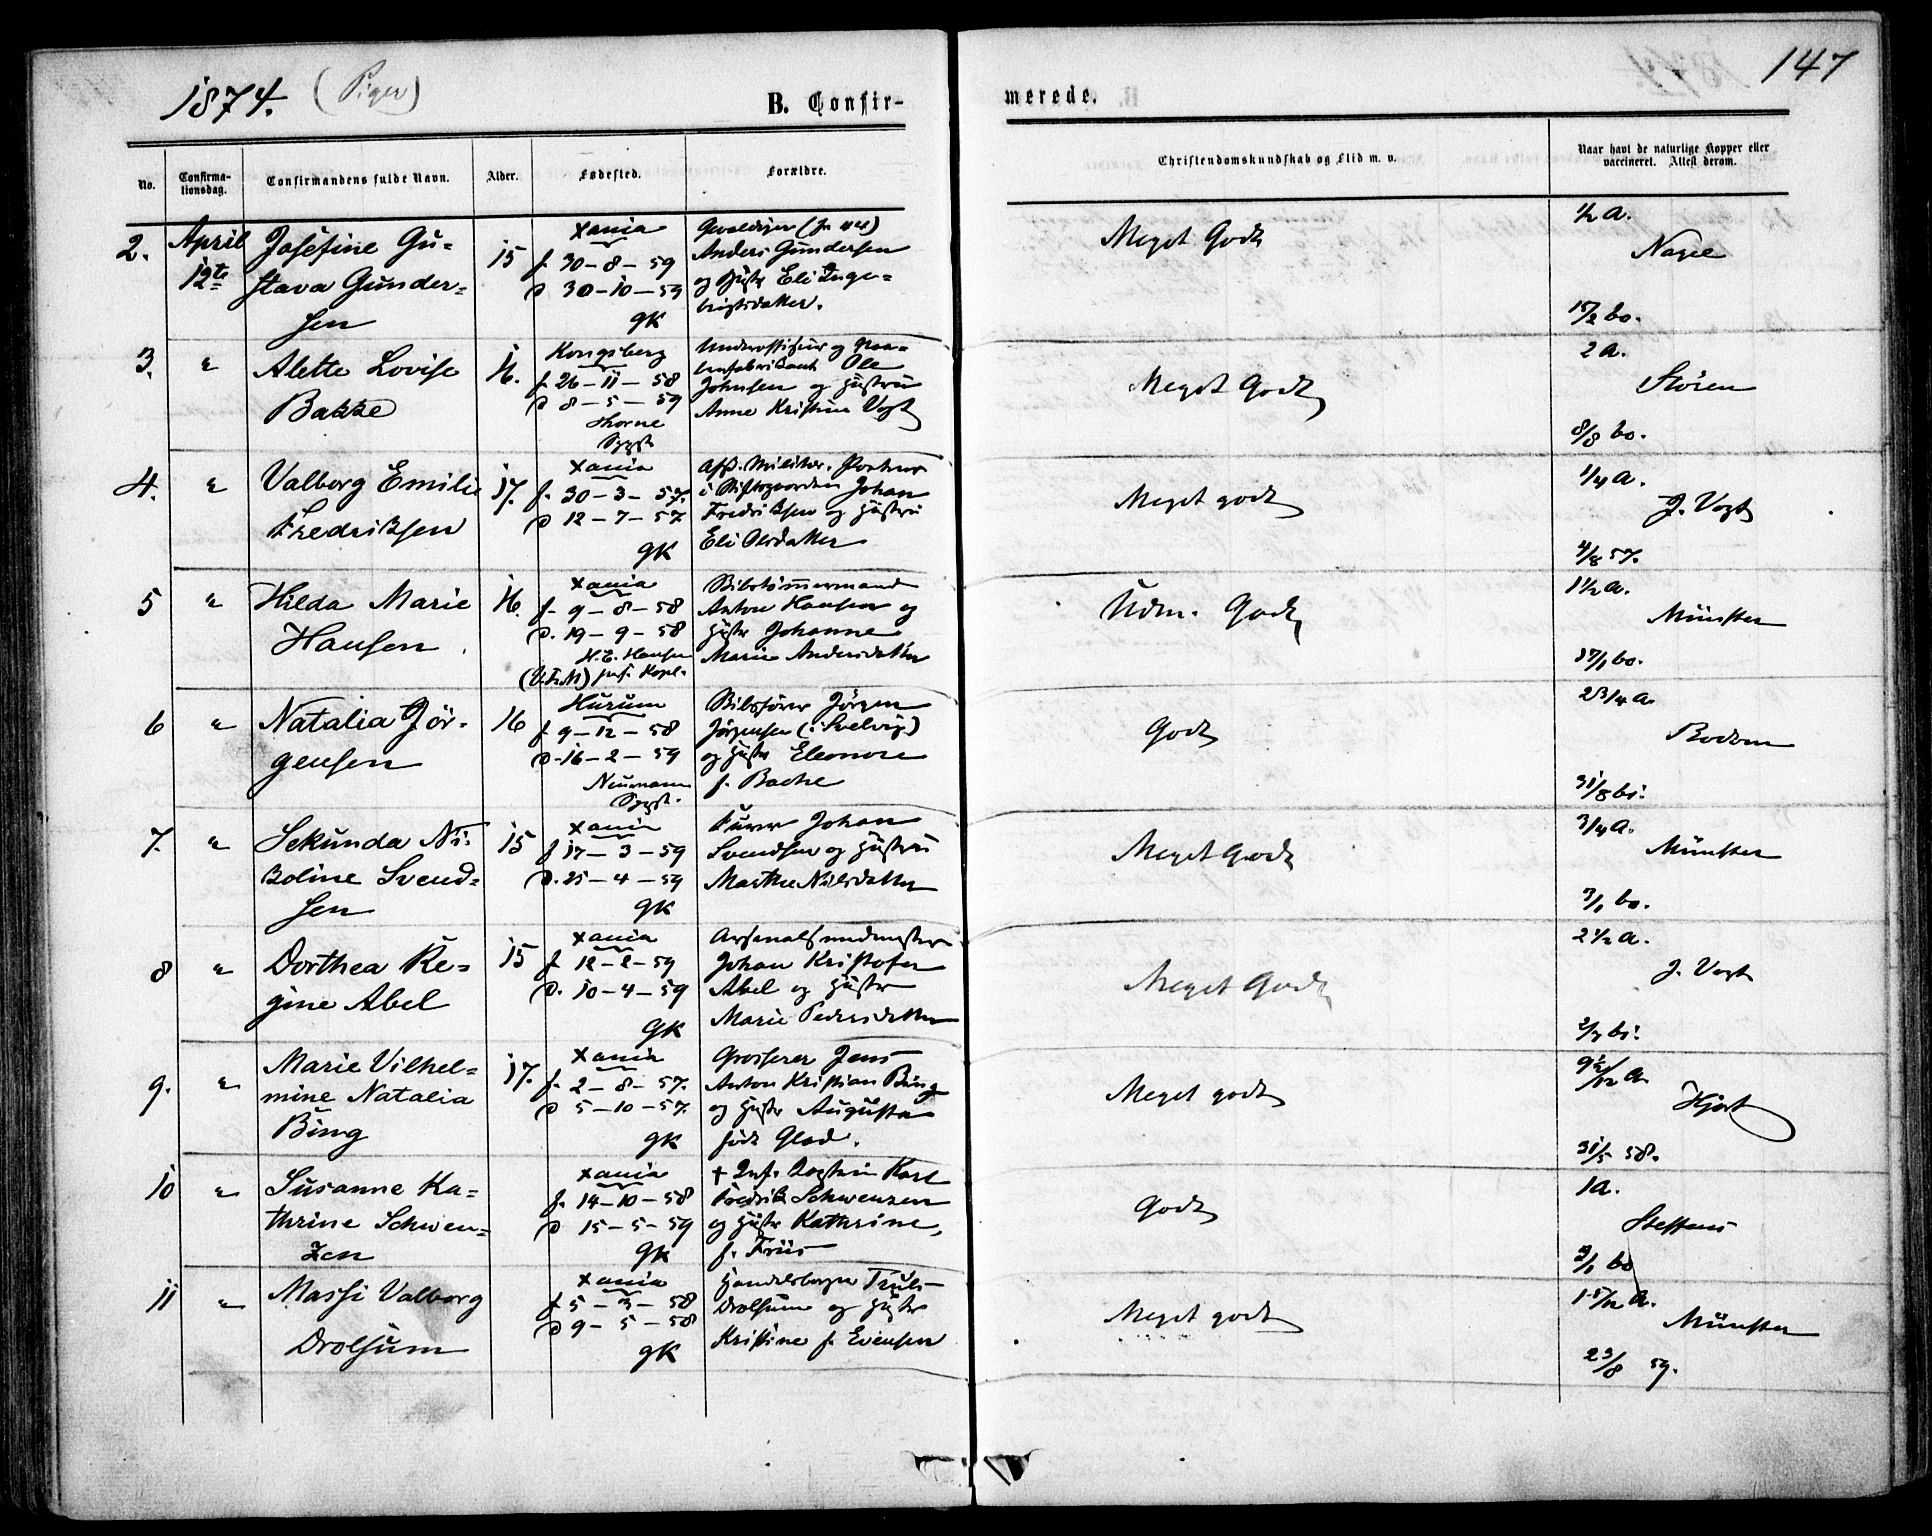 1874. (Piger)
B. Confir-
merede.
147
No.
Confirma-
tionsdag.
Confirmandens fulde Navn.
Alder.
Fødested.
Forældre.
Christendomskundskab og Flid m. v.
Naar havt de naturlige Kopper eller
vaccineret. Attest derom.
2. April 12te
Josefine Gu-
stava Gunder-
sen
15
Xania
f. 30-8-59
d 30-10-59
GK
Anders Gundersen
og Hustr Eli Inge-
brigtsdatter.
Meget Godt
1/2 A.
Nagel
15/2 60.
3. "
Alette Lovise
Bakke
16.
Kongsberg
f. 26-11-58
d 8-5-59
Thorne
Sygst
Underoffiser og
Ole
Johnsen og Hustru
Anne Kristine Vogt
Meget Godt
2 A.
Støren
8/8 60.
4. "
Valborg Emilie
Fredriksen
17.
Xania
f. 30-3-57.
d 12-7-57
GK
Afsk. Militær. Portner
i Stiftsgaarden Johan
Fredriksen og Hustru
Eli Olsdatter
Meget godt
1/4 A.
J. Vogt
4/8 57.
5 "
Hilda Marie
Hansen
16.
Xania
f. 9-8-58
d. 19-9-58
H. E. Hansen
(V.F.M) pers. Kapl.
Bibstømmermand
Anton Hansen og
Hustr Johanne
Marie Andersdatter
Udm. Godt
1 1/2 A.
Münster
27/1 60.
6 "
Natalia Jör-
gensen
16
Hurum
f 9-12-58
d. 16-2-59
Neumann
Sygst.
Skibsfører Jörgen
Jörgensen (i Svelvig)
og Hustr Eleonore
f. Backe
Godt
2 3/4 A.
Bodom
31/8 61.
7. "
Sekunda Ni-
koline Svend-
sen
15
Xania
f 17-3-59
d. 25-4-59
GK
Furer Johan
Svendsen og Hustru
Marthe Nilsdatter
Meget Godt
3/4 A.
Münster
3/1 60.
8 "
Dorthea Re-
gine Abel
15
Xania
f 12-2-59
d. 10-4-59
GK
Johan Kristofer
Abel og Hustr
Marie Pedersdatter
Meget Godt
2 1/2 A.
J. Vogt
2/7 61.
9. "
Marie Vilhel-
mine Natalia
Bing
17.
Xania
f. 2-8-57.
d 5-10-57.
GK
Grosserer Jens
Anton Kristian Bing
og Hustr Augusta
født Glad.
Meget godt
9 1/2/12 A.
Hjort
31/5 58.
10 "
Susanne Ka-
thrine Schwen-
zen
Xania
f. 14-10-58
d 15-5-59
GK
+ Inf. Kaptein Karl
Fredrik Schwenzen
og Hustr Kathrine,
f. Friis
Godt
1 A.
Steffens
3/1 60
11 "
Massi Valborg
Drolsum
Xania
f 5-3-58
d 9-5-58
GK
Handelsborger Truls
Drolsum og Hustr
Kristine f. Evensen
Meget godt
1 5/12 A.
Münster
23/8 59.